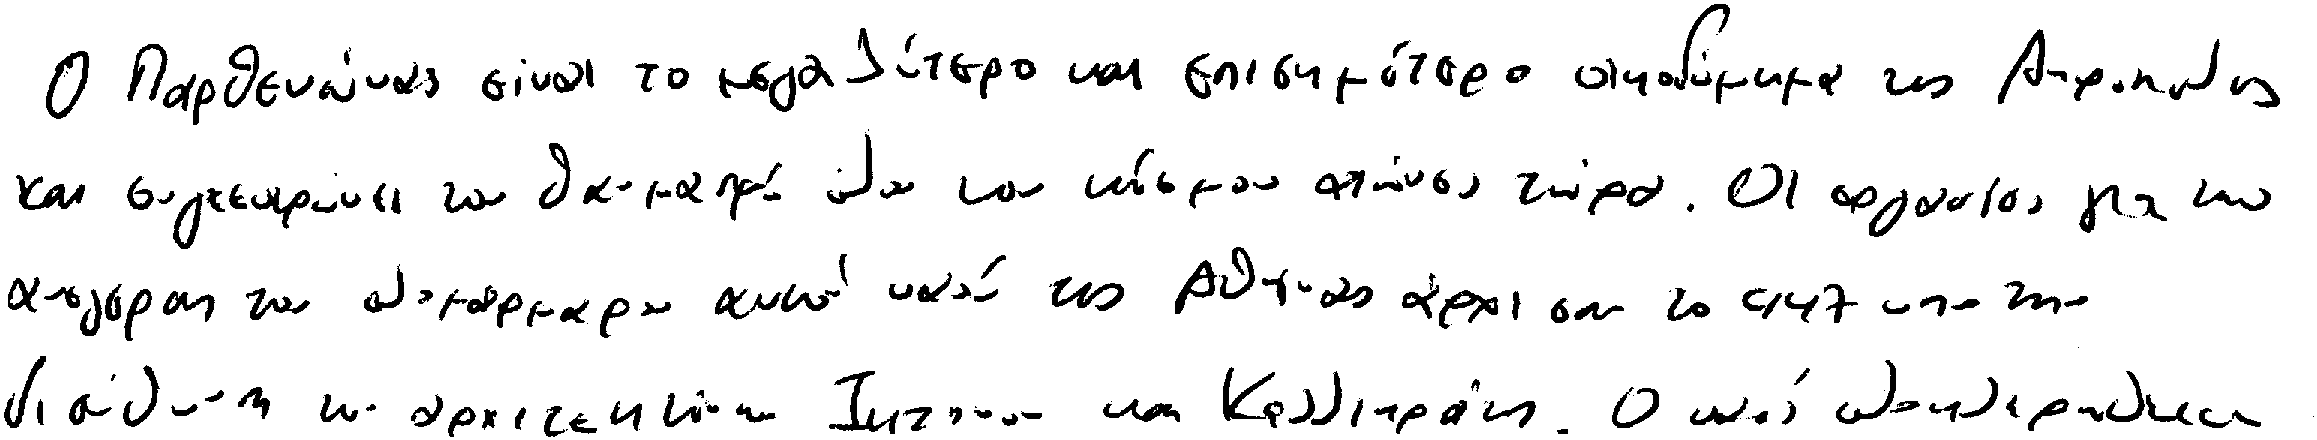 Ο Παρθενώνας είναι το μεγαλύτερο και επισημότερο οικοδόμημα της Ακροπολης
και συγκεντρώνει τον θαυμασμό όλου του κόσμου απ'όσο τώρα. Οι εργασίες για την
ανέγερση του ολομάρμαρου αυτού ναού της Αθηνάς άρχισαν το 447 υπο την
διεύθυνση των αρχιτεκτόνων Ικτινου και Καλλικράτη. Ο ναός ολοκληρωθηκε